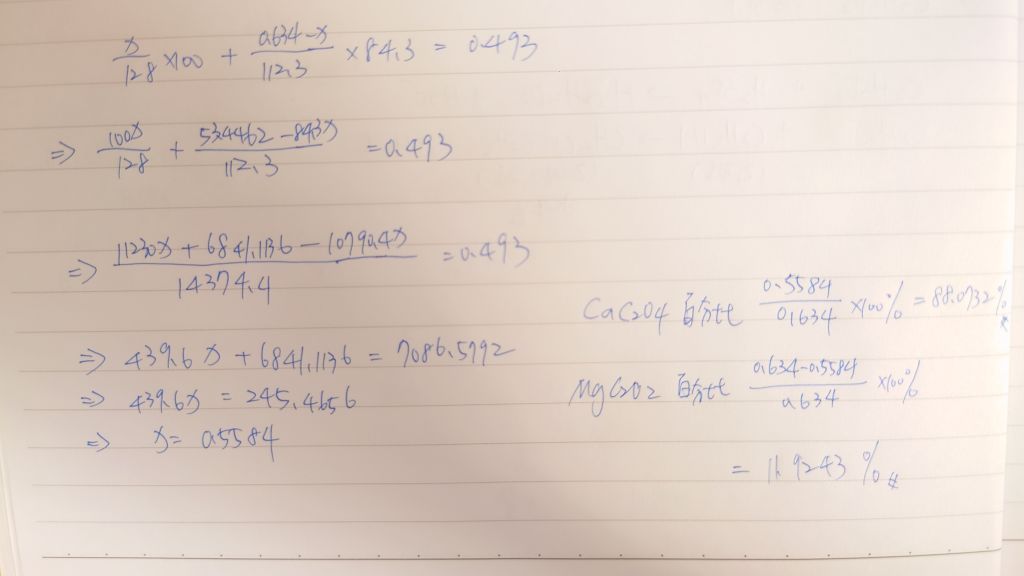 x/128 ×100 + (0.634-x)/112.3 ×84.3 = 0.493
⇒ 100x/128 + (53.4462-84.3x)/112.3 = 0.493
⇒ (11230x + 6841.1136 - 10790.4x)/14374.4 = 0.493
⇒ 439.6x + 6841.1136 = 7086.5792
⇒ 439.6x = 245.4656
⇒ x = 0.5584
CaC2O4 百分比 0.5584/0.634 ×100% = 88.0732%
MgC2O2 百分比 (0.634-0.5584)/0.634 ×100%
= 11.9243% #